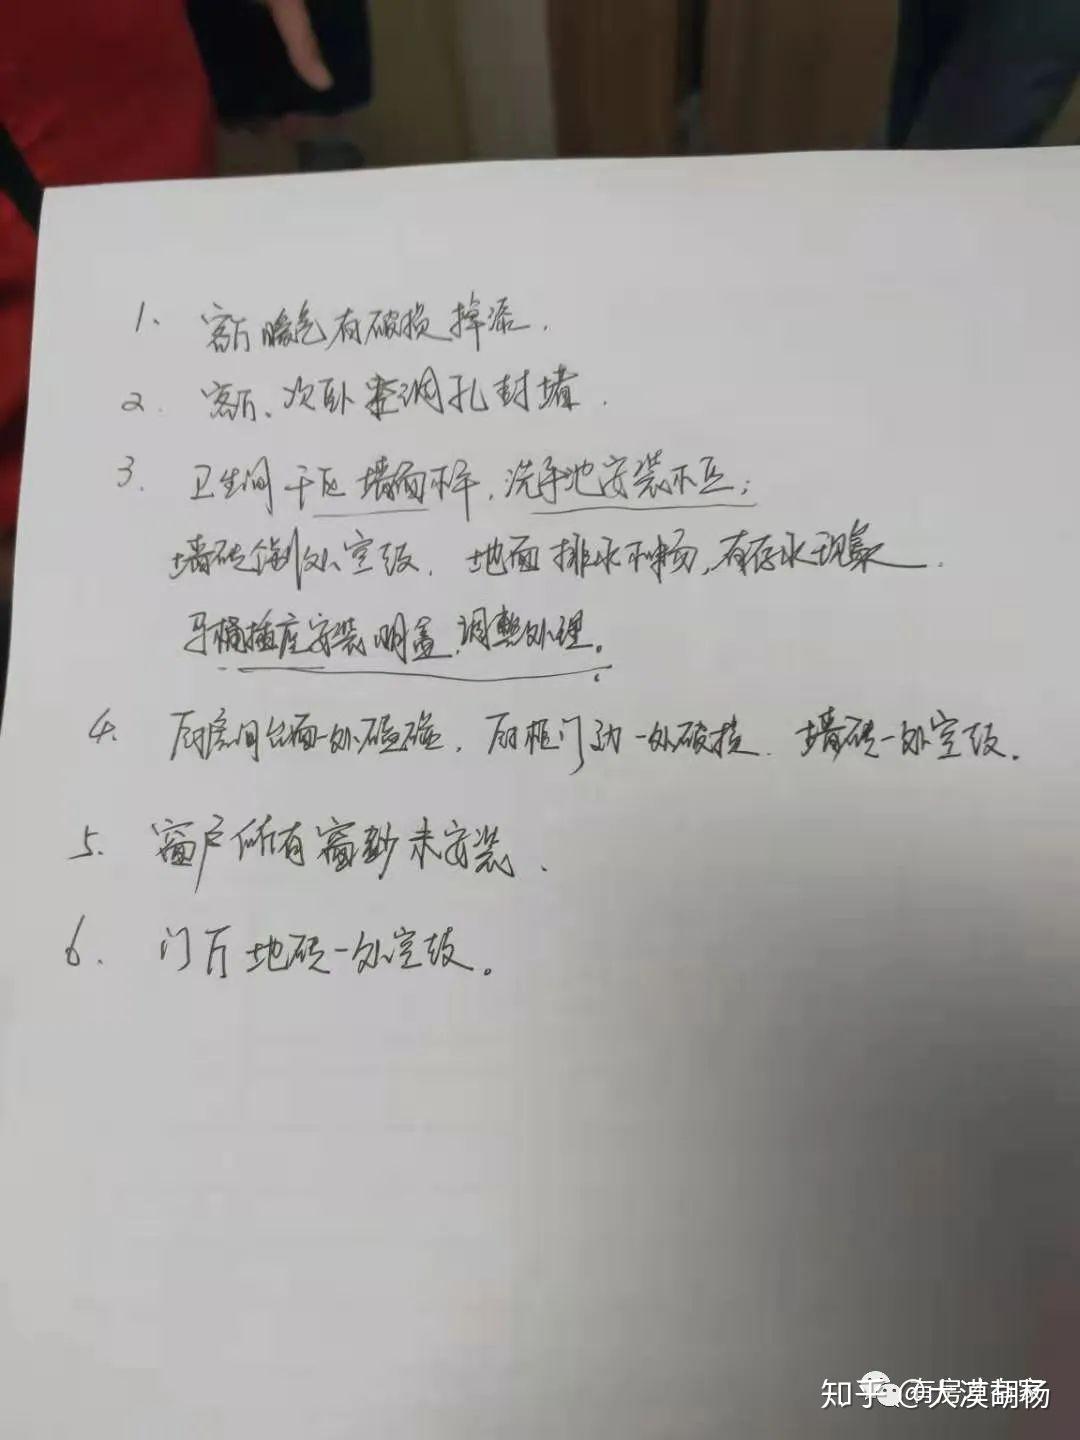 1. 客厅暖气有破损掉漆.
2. 客厅、次卧空调孔封堵.
3. 卫生间干区墙面不平,洗手池安装不正;
墙砖个别处空鼓. 地面排水不畅,有存水现象.
马桶插座安装明盒,调整处理。
4. 厨房间台面一处磕碰. 厨柜门边一处破损. 墙砖一处空鼓.
5. 窗户所有窗纱未安装.
6. 门厅地砖一处空鼓。
知乎 @大漠胡杨